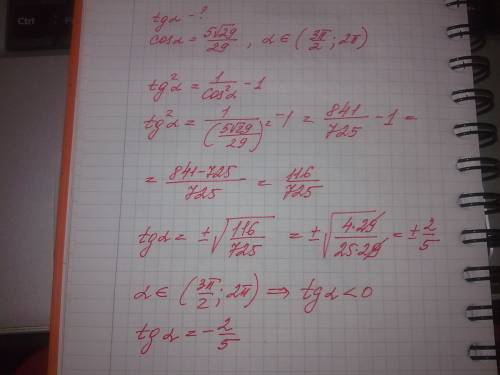 tgα - ?
cosα = 5√29/29 , α ∈ (3π/2 ; 2π)
tg²α = 1/cos²α - 1
tg²α = 1/(5√29/29)² - 1 = 841/725 - 1 =
= 841-725/725 = 116/725
tgα = ±√116/725 = ±√4·29/25·29 = ±2/5
α ∈ (3π/2 ; 2π) ⇒ tgα < 0
tgα = -2/5
Ctrl